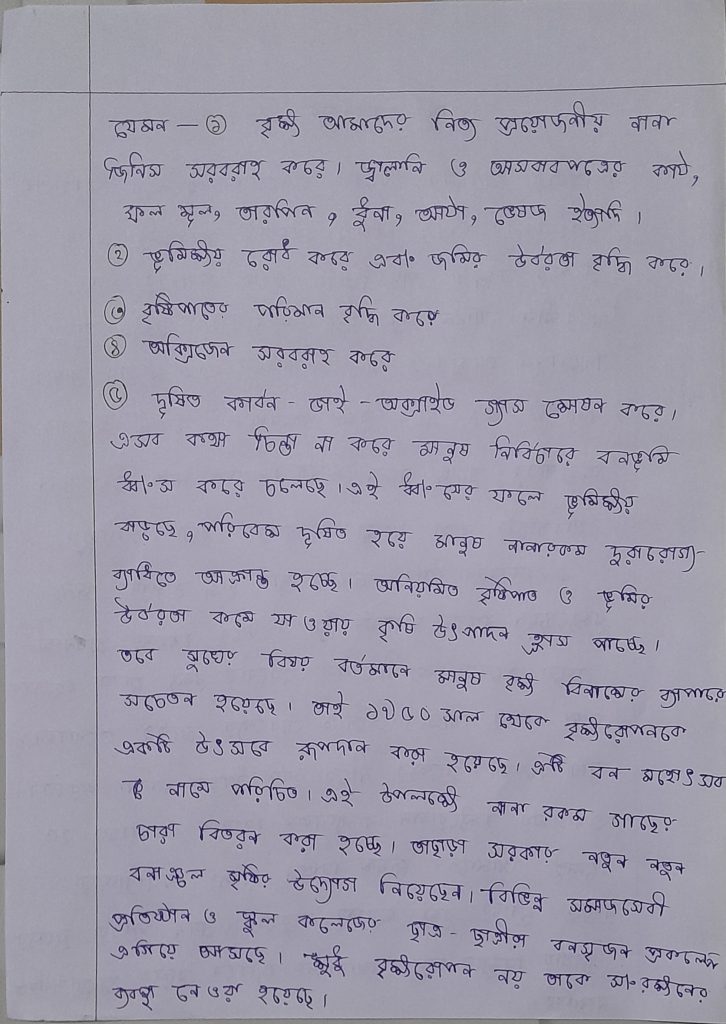 যেমন — ① বৃক্ষ আমাদের নিত্য প্রয়োজনীয় নানা
জিনিস সরবরাহ করে। জ্বালানি ও আসবাবপত্রের কাঠ,
ফল মূল, তারপিন, ধুনা, আঠা, ভেষজ ইত্যাদি।
② ভূমিক্ষয় রোধ করে এবং জমির উর্বরতা বৃদ্ধি করে।
③ বৃষ্টিপাতের পরিমান বৃদ্ধি করে
④ অক্সিজেন সরবরাহ করে
⑤ দূষিত কার্বন - ডাই - অক্সাইড গ্যাস শোষন করে।
এসব কথা চিন্তা না করে মানুষ নির্বিচারে বনভূমি
ধ্বংস করে চলেছে। এই ধ্বংসের ফলে ভূমিক্ষয়
বাড়ছে, পরিবেশ দূষিত হয়ে মানুষ নানারকম দুরারোগ্য-
ব্যাধিতে আক্রান্ত হচ্ছে। অনিয়মিত বৃষ্টিপাত ও ভূমির
উর্বরতা কমে যাওয়ায় কৃষি উৎপাদন হ্রাস পাচ্ছে।
তবে সুখের বিষয় বর্তমানে মানুষ বৃক্ষ বিনাশের ব্যাপারে
সচেতন হয়েছে। তাই ১৯৫০ সাল থেকে বৃক্ষরোপনকে
একটি উৎসবে রূপদান করা হয়েছে। এটি বন মহোৎসব
নামে পরিচিত। এই উপলক্ষে নানা রকম গাছের
চারা বিতরন করা হচ্ছে। তাছাড়া সরকার নতুন নতুন
বনাঞ্চল সৃষ্টির উদ্যোগ নিয়েছেন। বিভিন্ন সমাজসেবী
প্রতিষ্ঠান ও স্কুল কলেজের ছাত্র - ছাত্রীরা বনসৃজন প্রকল্পে
এগিয়ে আসছে। শুধু বৃক্ষরোপন নয় তাকে সংরক্ষনের
ব্যবস্থা নেওয়া হয়েছে।